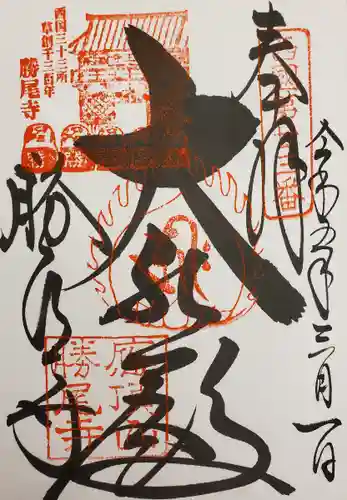 令和五年三月一日
奉拝
大悲殿
勝尾寺
西国三十三所
草創千三百年
勝尾寺
應頂山
勝尾寺